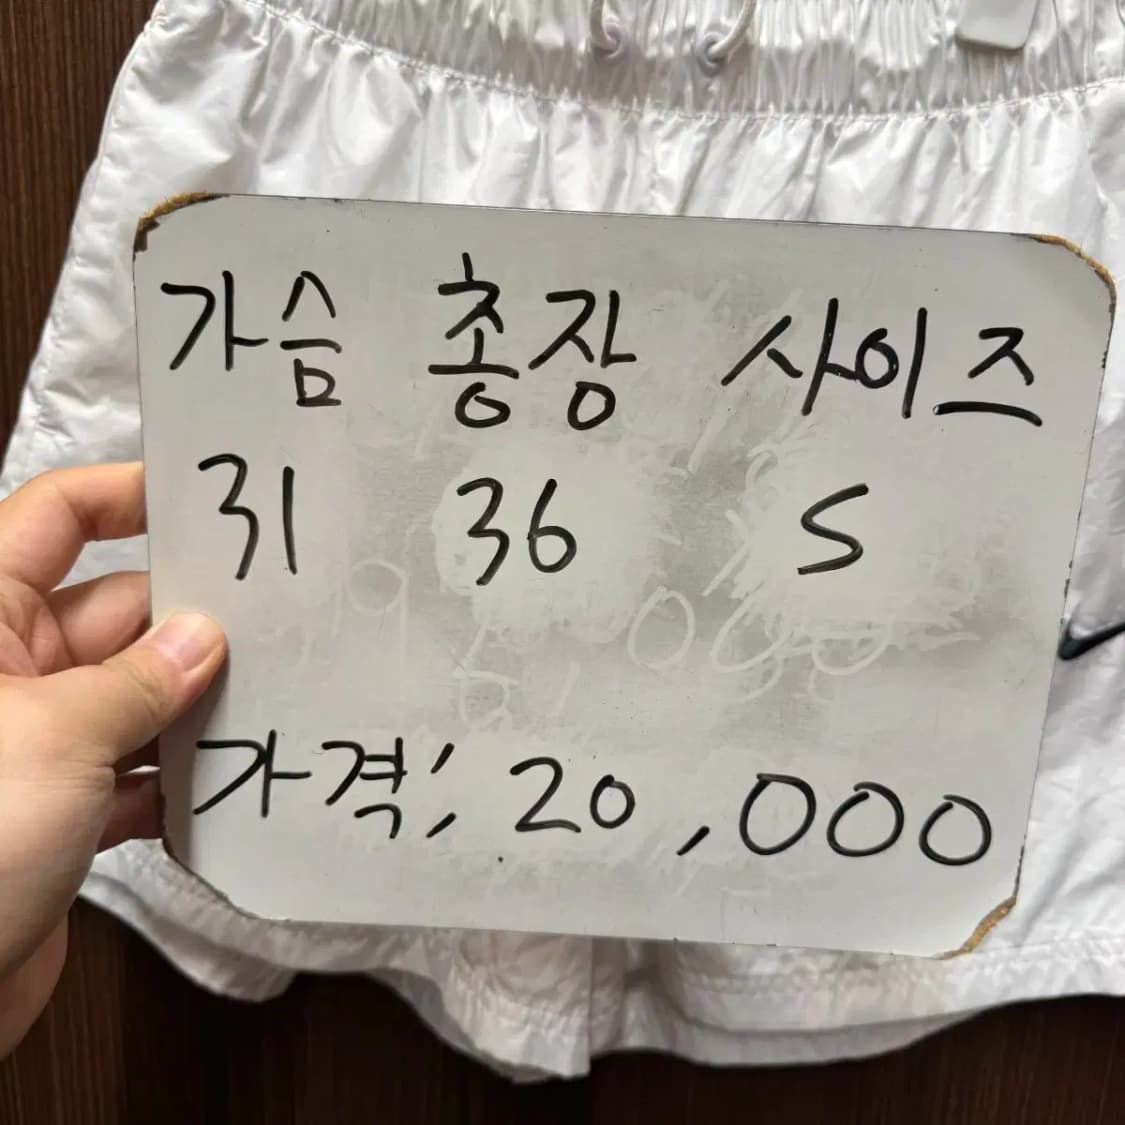 가슴 총장 사이즈
31 36 S
가격; 20,000